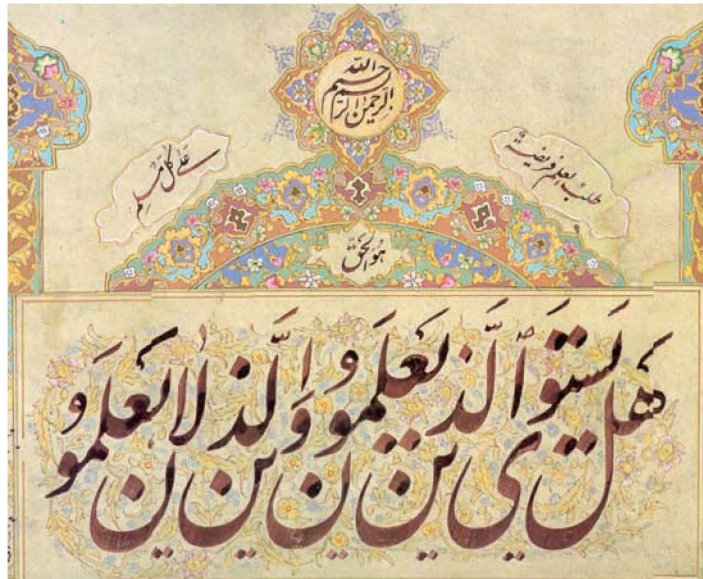 بسم الله الرحمن الرحیم
طلب العلم فریضة
علی کل مسلم
هو الحق
هَل یَستَوی الَّذینَ یَعلَمُونَ وَالَّذینَ لا یَعلَمُونَ